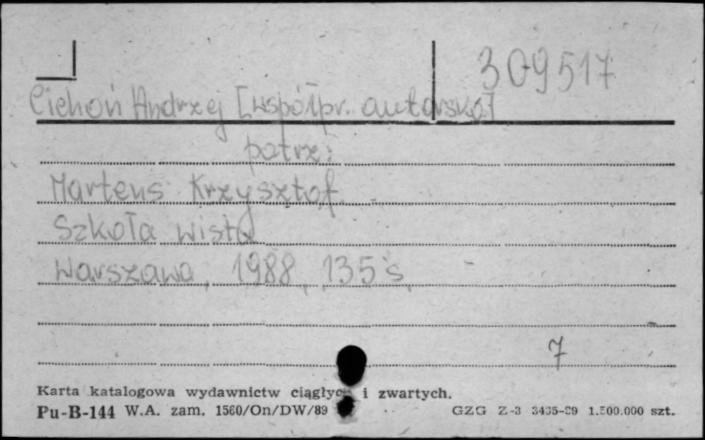 309517
Cichoń Andrzej [współpr. autorska]
patrz:
Martens Krzysztof
Szkoła wista
Warszawa, 1988, 135 s.
7
Karta katalogowa wydawnictw ciągłych i zwartych.
Pu-B-144 W.A. zam. 1560/On/DW/89 GZG Z-3 3435-89 1.500.000 szt.